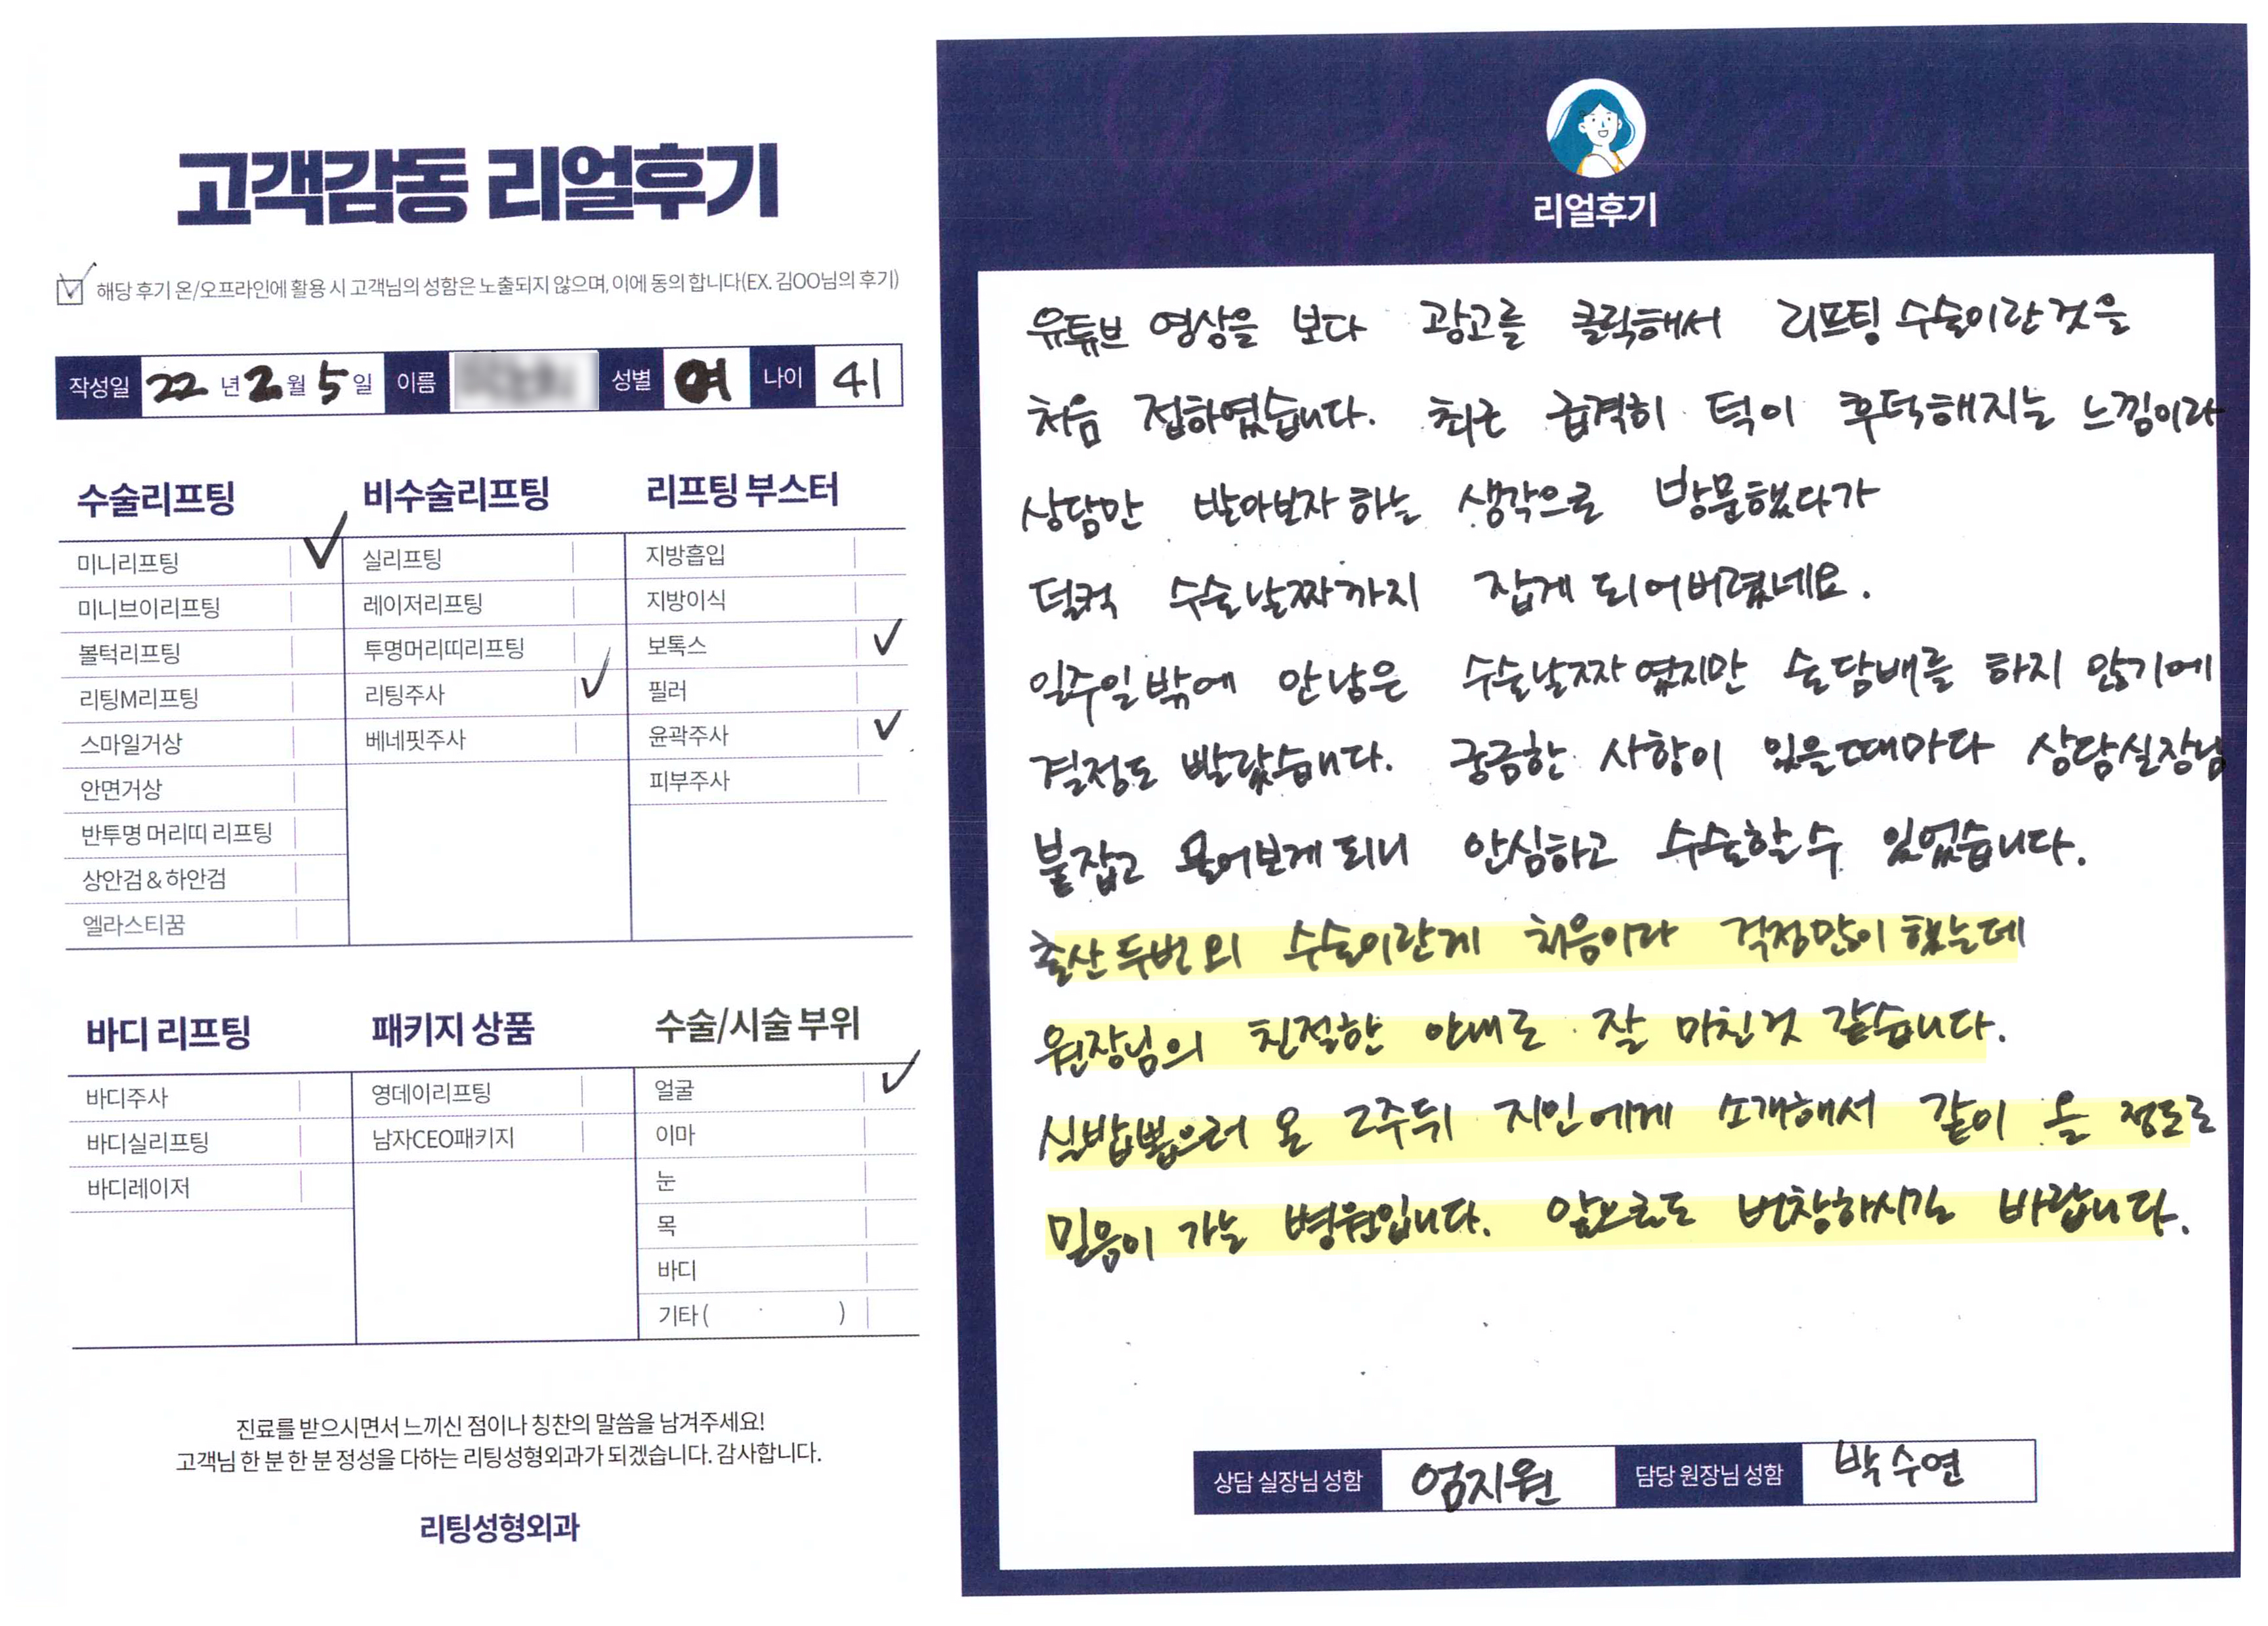 고객감동 리얼후기
해당 후기 온/오프라인에 활용 시 고객님의 성함은 노출되지 않으며, 이에 동의 합니다(EX. 김OO님의 후기)
작성일 22 년 2 월 5 일 이름 성별 여 나이 41
수술리프팅
미니리프팅
미니브이리프팅
볼턱리프팅
리팅M리프팅
스마일거상
안면거상
반투명 머리띠 리프팅
상안검 & 하안검
엘라스티꿈
비수술리프팅
실리프팅
레이저리프팅
투명머리띠리프팅
리팅주사
베네핏주사
리프팅 부스터
지방흡입
지방이식
보톡스
필러
윤곽주사
피부주사
바디 리프팅
바디주사
바디실리프팅
바디레이저
패키지 상품
영데이리프팅
남자CEO패키지
수술/시술 부위
얼굴
이마
눈
목
바디
기타 ( )
진료를 받으시면서 느끼신 점이나 칭찬의 말씀을 남겨주세요!
고객님 한 분 한 분 정성을 다하는 리팅성형외과가 되겠습니다. 감사합니다.
리팅성형외과
리얼후기
유튜브 영상을 보다 광고를 클릭해서 리프팅 수술이란것을
처음 접하였습니다. 최근 급격히 턱이 후덕해지는 느낌이라
상담만 받아보자 하는 생각으로 방문했다가
덜컥 수술날짜까지 잡게 되어버렸네요.
일주일밖에 안남은 수술날짜였지만 술담배를 하지 않기에
결정도 빨랐습니다. 궁금한 사항이 있을때마다 상담실장님
붙잡고 물어보게 되니 안심하고 수술할수 있었습니다.
출산 두번 외 수술이란게 처음이라 걱정많이 했는데
원장님의 친절한 안내로 잘 마친것 같습니다.
실밥뽑으러 온 2주뒤 지인에게 소개해서 같이 올 정도로
믿음이 가는 병원입니다. 앞으로도 번창하시길 바랍니다.
상담 실장님 성함 엄지원 담당 원장님 성함 박수연